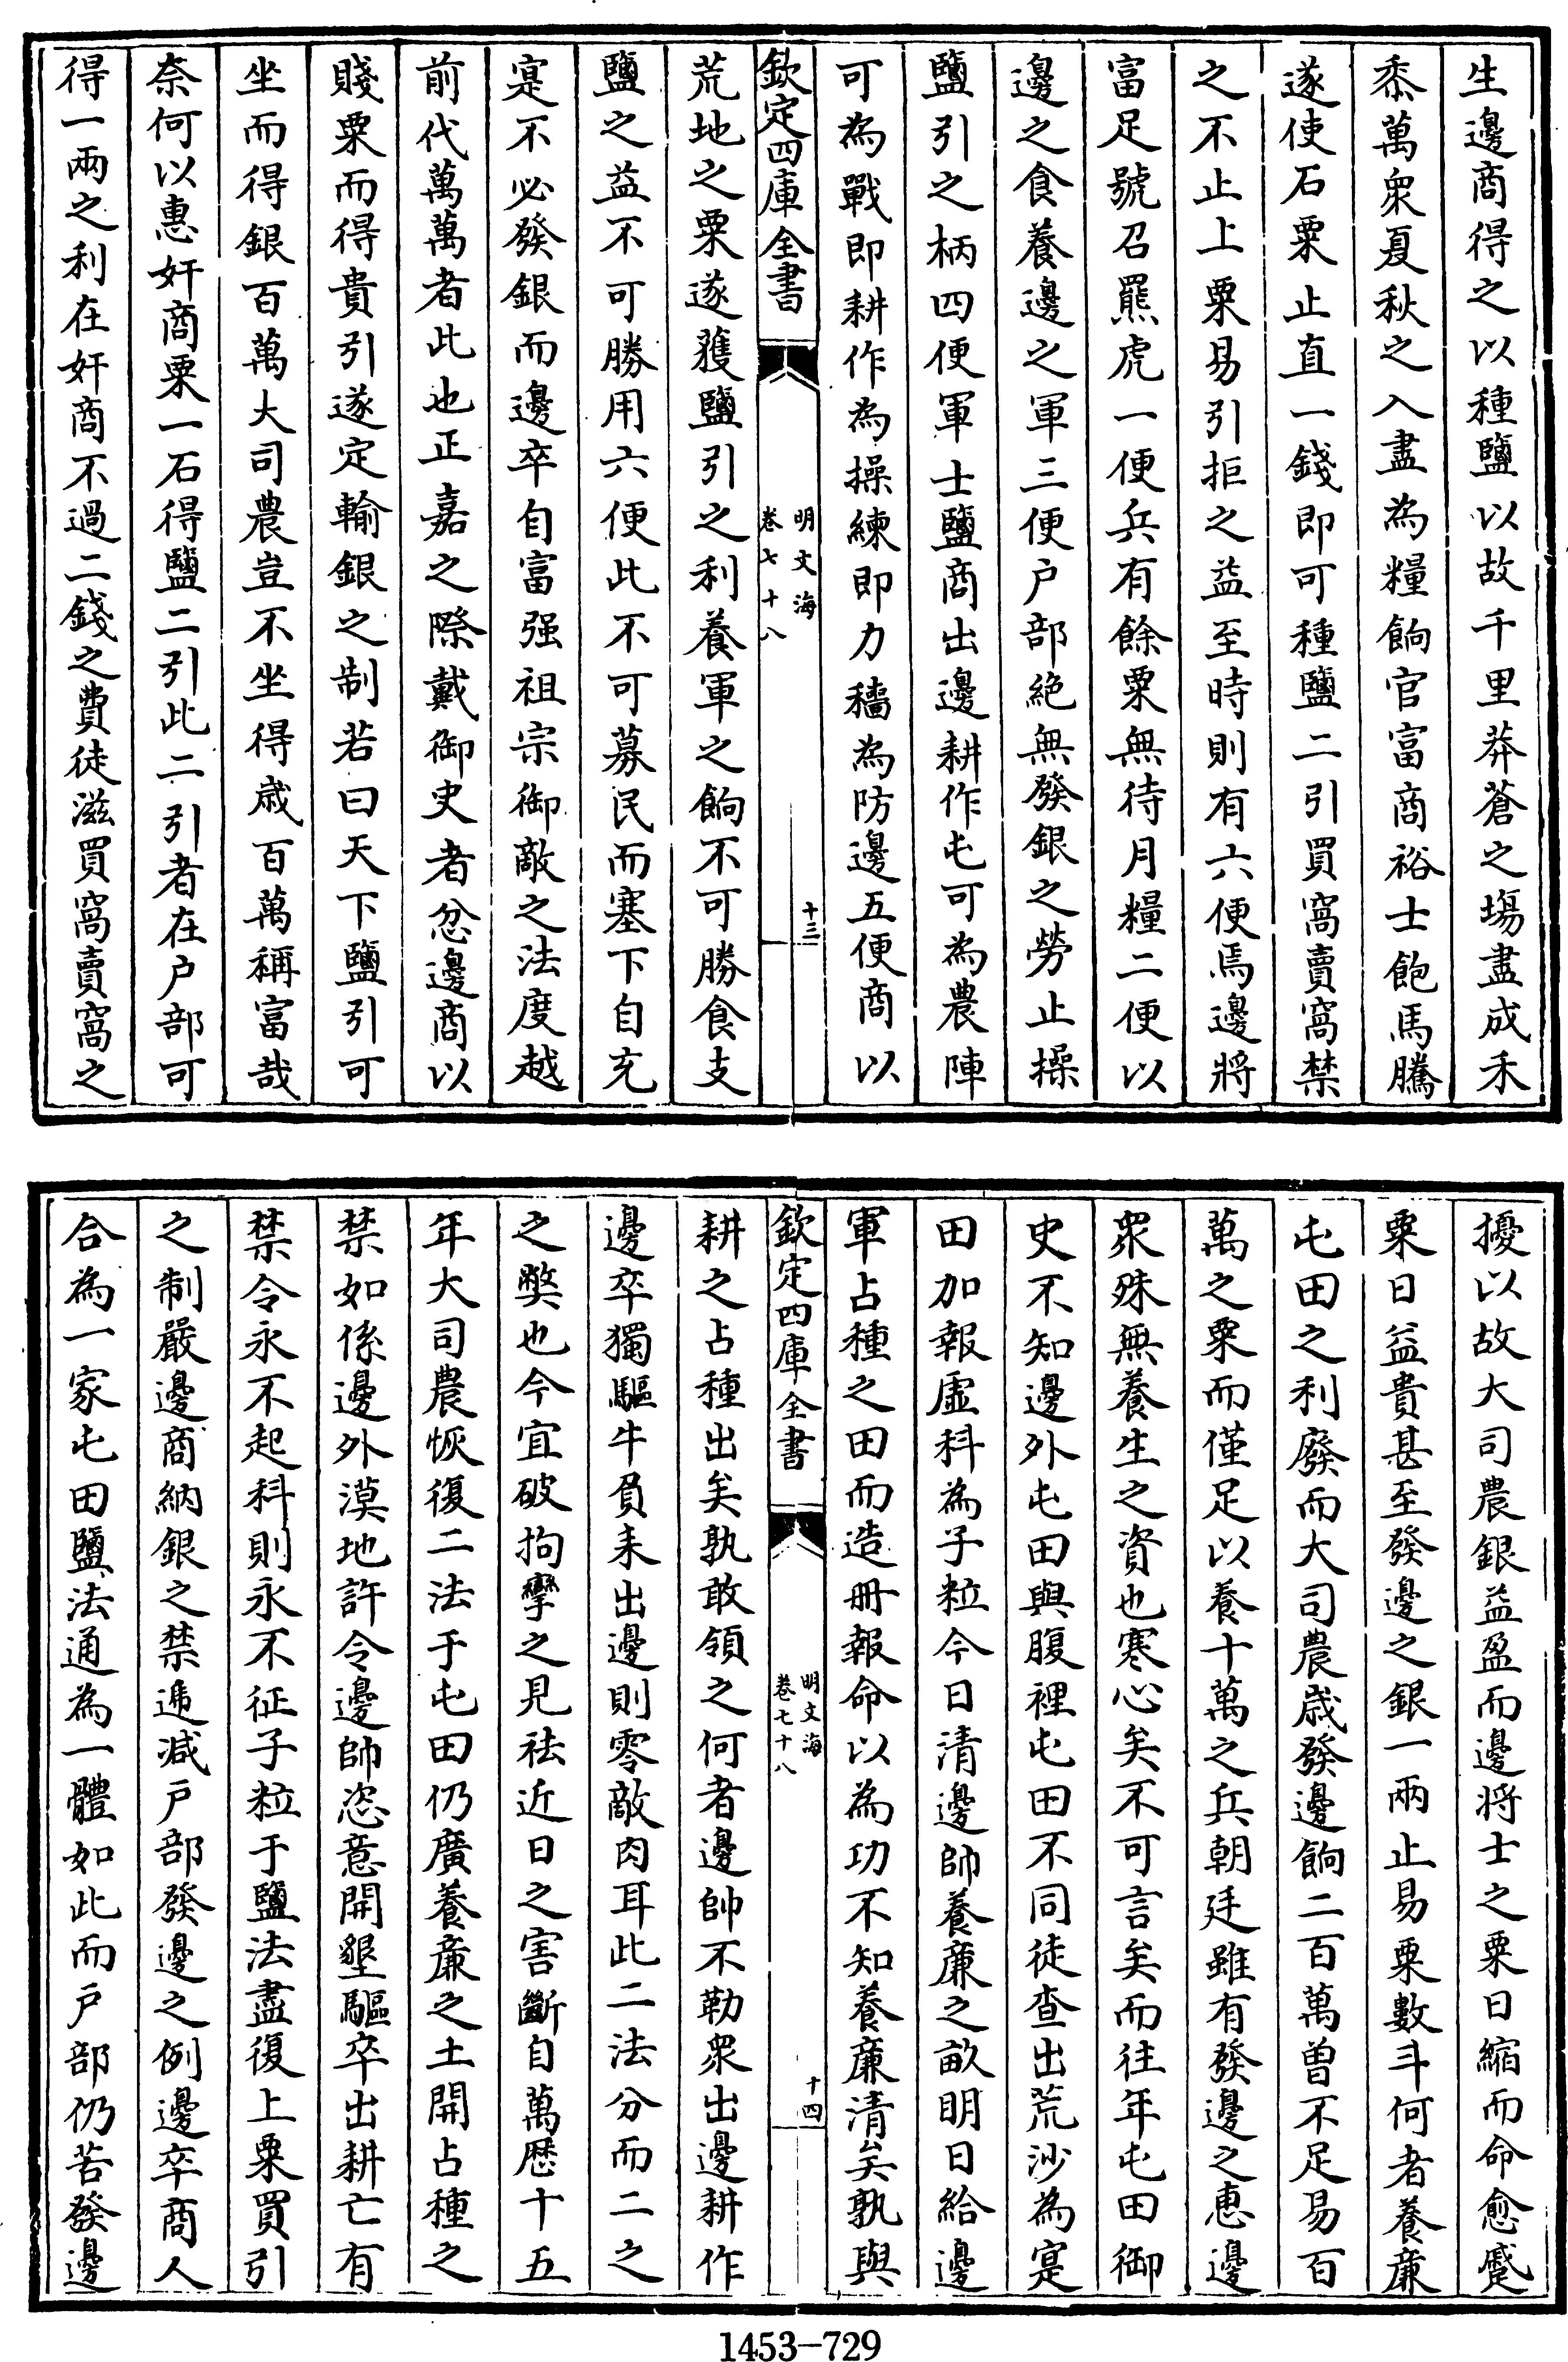 生邊商得之以種鹽以故千里莽蒼之塲盡成禾
黍萬衆夏秋之入盡為糧餉官富商裕士飽馬騰
遂使石粟止直一錢即可種鹽二引買窩賣窩禁
之不止上粟易引拒之益至時則有六便焉邊將
富足號召羆虎一便兵有餘粟無待月糧二便以
邊之食養邊之軍三便户部絶無發銀之勞止操
鹽引之柄四便軍士鹽商出邊耕作屯可為農陣
可為戰即耕作為操練即力穡為防邊五便商以
欽定四庫全書
明文海
卷七十八
十三
荒地之粟遂獲鹽引之利養軍之餉不可勝食支
鹽之益不可勝用六便此不可募民而塞下自充
寔不必發銀而邊卒自富强祖宗御敵之法度越
前代萬萬者此也正嘉之際戴御史者忿邊商以
賤粟而得貴引遂定輸銀之制若曰天下鹽引可
坐而得銀百萬大司農豈不坐得歲百萬稱富哉
奈何以惠奸商粟一石得鹽二引此二引者在户部可
得一兩之利在奸商不過二錢之費徒滋買窩賣窩之
擾以故大司農銀益盈而邊將士之粟日縮而命愈蹙
粟日益貴甚至發邊之銀一兩止易粟數斗何者養廉
屯田之利廢而大司農歲發邊餉二百萬曾不足易百
萬之粟而僅足以養十萬之兵朝廷雖有發邊之惠邊
衆殊無養生之資也寒心矣不可言矣而往年屯田御
史不知邊外屯田與腹裡屯田不同徒查出荒沙為寔
田加報虛科為子粒今日清邊帥養廉之畝明日給邊
軍占種之田而造冊報命以為功不知養廉清矣孰與
欽定四庫全書
明文海
卷七十八
十四
耕之占種出矣孰敢領之何者邊帥不勒衆出邊耕作
邊卒獨驅牛負耒出邊則零敵肉耳此二法分而二之
之獘也今宜破拘攣之見祛近日之害斷自萬厯十五
年大司農恢復二法于屯田仍廣養廉之土開占種之
禁如係邊外漠地許令邊帥恣意開墾驅卒出耕亡有
禁令永不起科則永不征子粒于鹽法盡復上粟買引
之制嚴邊商納銀之禁遞减戸部發邊之例邊卒商人
合為一家屯田鹽法通為一體如此而戸部仍苦發邊
1453-729